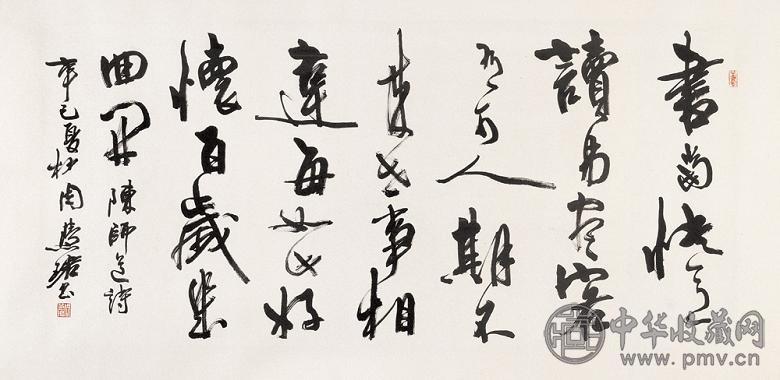 書當快意
讀易盡客
有可人期不
來世事相
違每如此好
懷百歲幾
回開 陳師道詩
辛巳夏杪周慧珺書
中华收藏网
www.pmv.cn